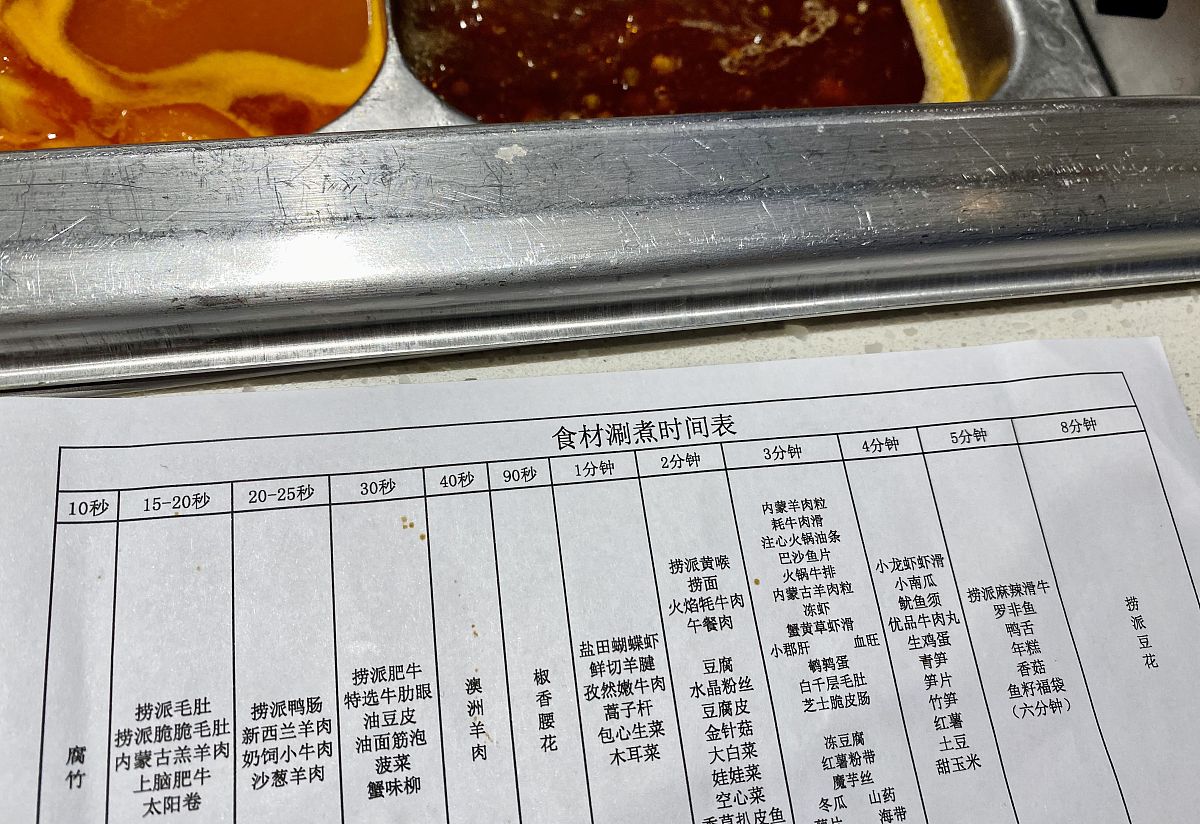 食材涮煮时间表
10秒
15-20秒
20-25秒
30秒
40秒
90秒
1分钟
2分钟
3分钟
4分钟
5分钟
8分钟
腐竹
捞派毛肚
捞派脆脆毛肚
内蒙古羔羊肉
上脑肥牛
太阳卷
捞派鸭肠
新西兰羊肉
奶饲小牛肉
沙葱羊肉
捞派肥牛
特选牛肋眼
油豆皮
油面筋泡
菠菜
蟹味柳
澳洲羊肉
椒香腰花
盐田蝴蝶虾
鲜切羊腱
孜然嫩牛肉
蒿子杆
包心生菜
木耳菜
捞派黄喉
捞面
火焰牦牛肉
午餐肉
豆腐
水晶粉丝
豆腐皮
金针菇
大白菜
娃娃菜
空心菜
香草扒皮鱼
内蒙羊肉粒
耗牛肉滑
注心火锅油条
巴沙鱼片
火锅牛排
内蒙古羊肉粒
冻虾
蟹黄草虾滑
小郡肝 血旺
鹌鹑蛋
白千层毛肚
芝士脆皮肠
冻豆腐
红薯粉带
魔芋丝
冬瓜 山药
海带
小龙虾虾滑
小南瓜
鱿鱼须
优品牛肉丸
生鸡蛋
青笋
笋片
竹笋
红薯
土豆
甜玉米
捞派麻辣滑牛
罗非鱼
鸭舌
年糕
香菇
鱼籽福袋
(六分钟)
捞派豆花